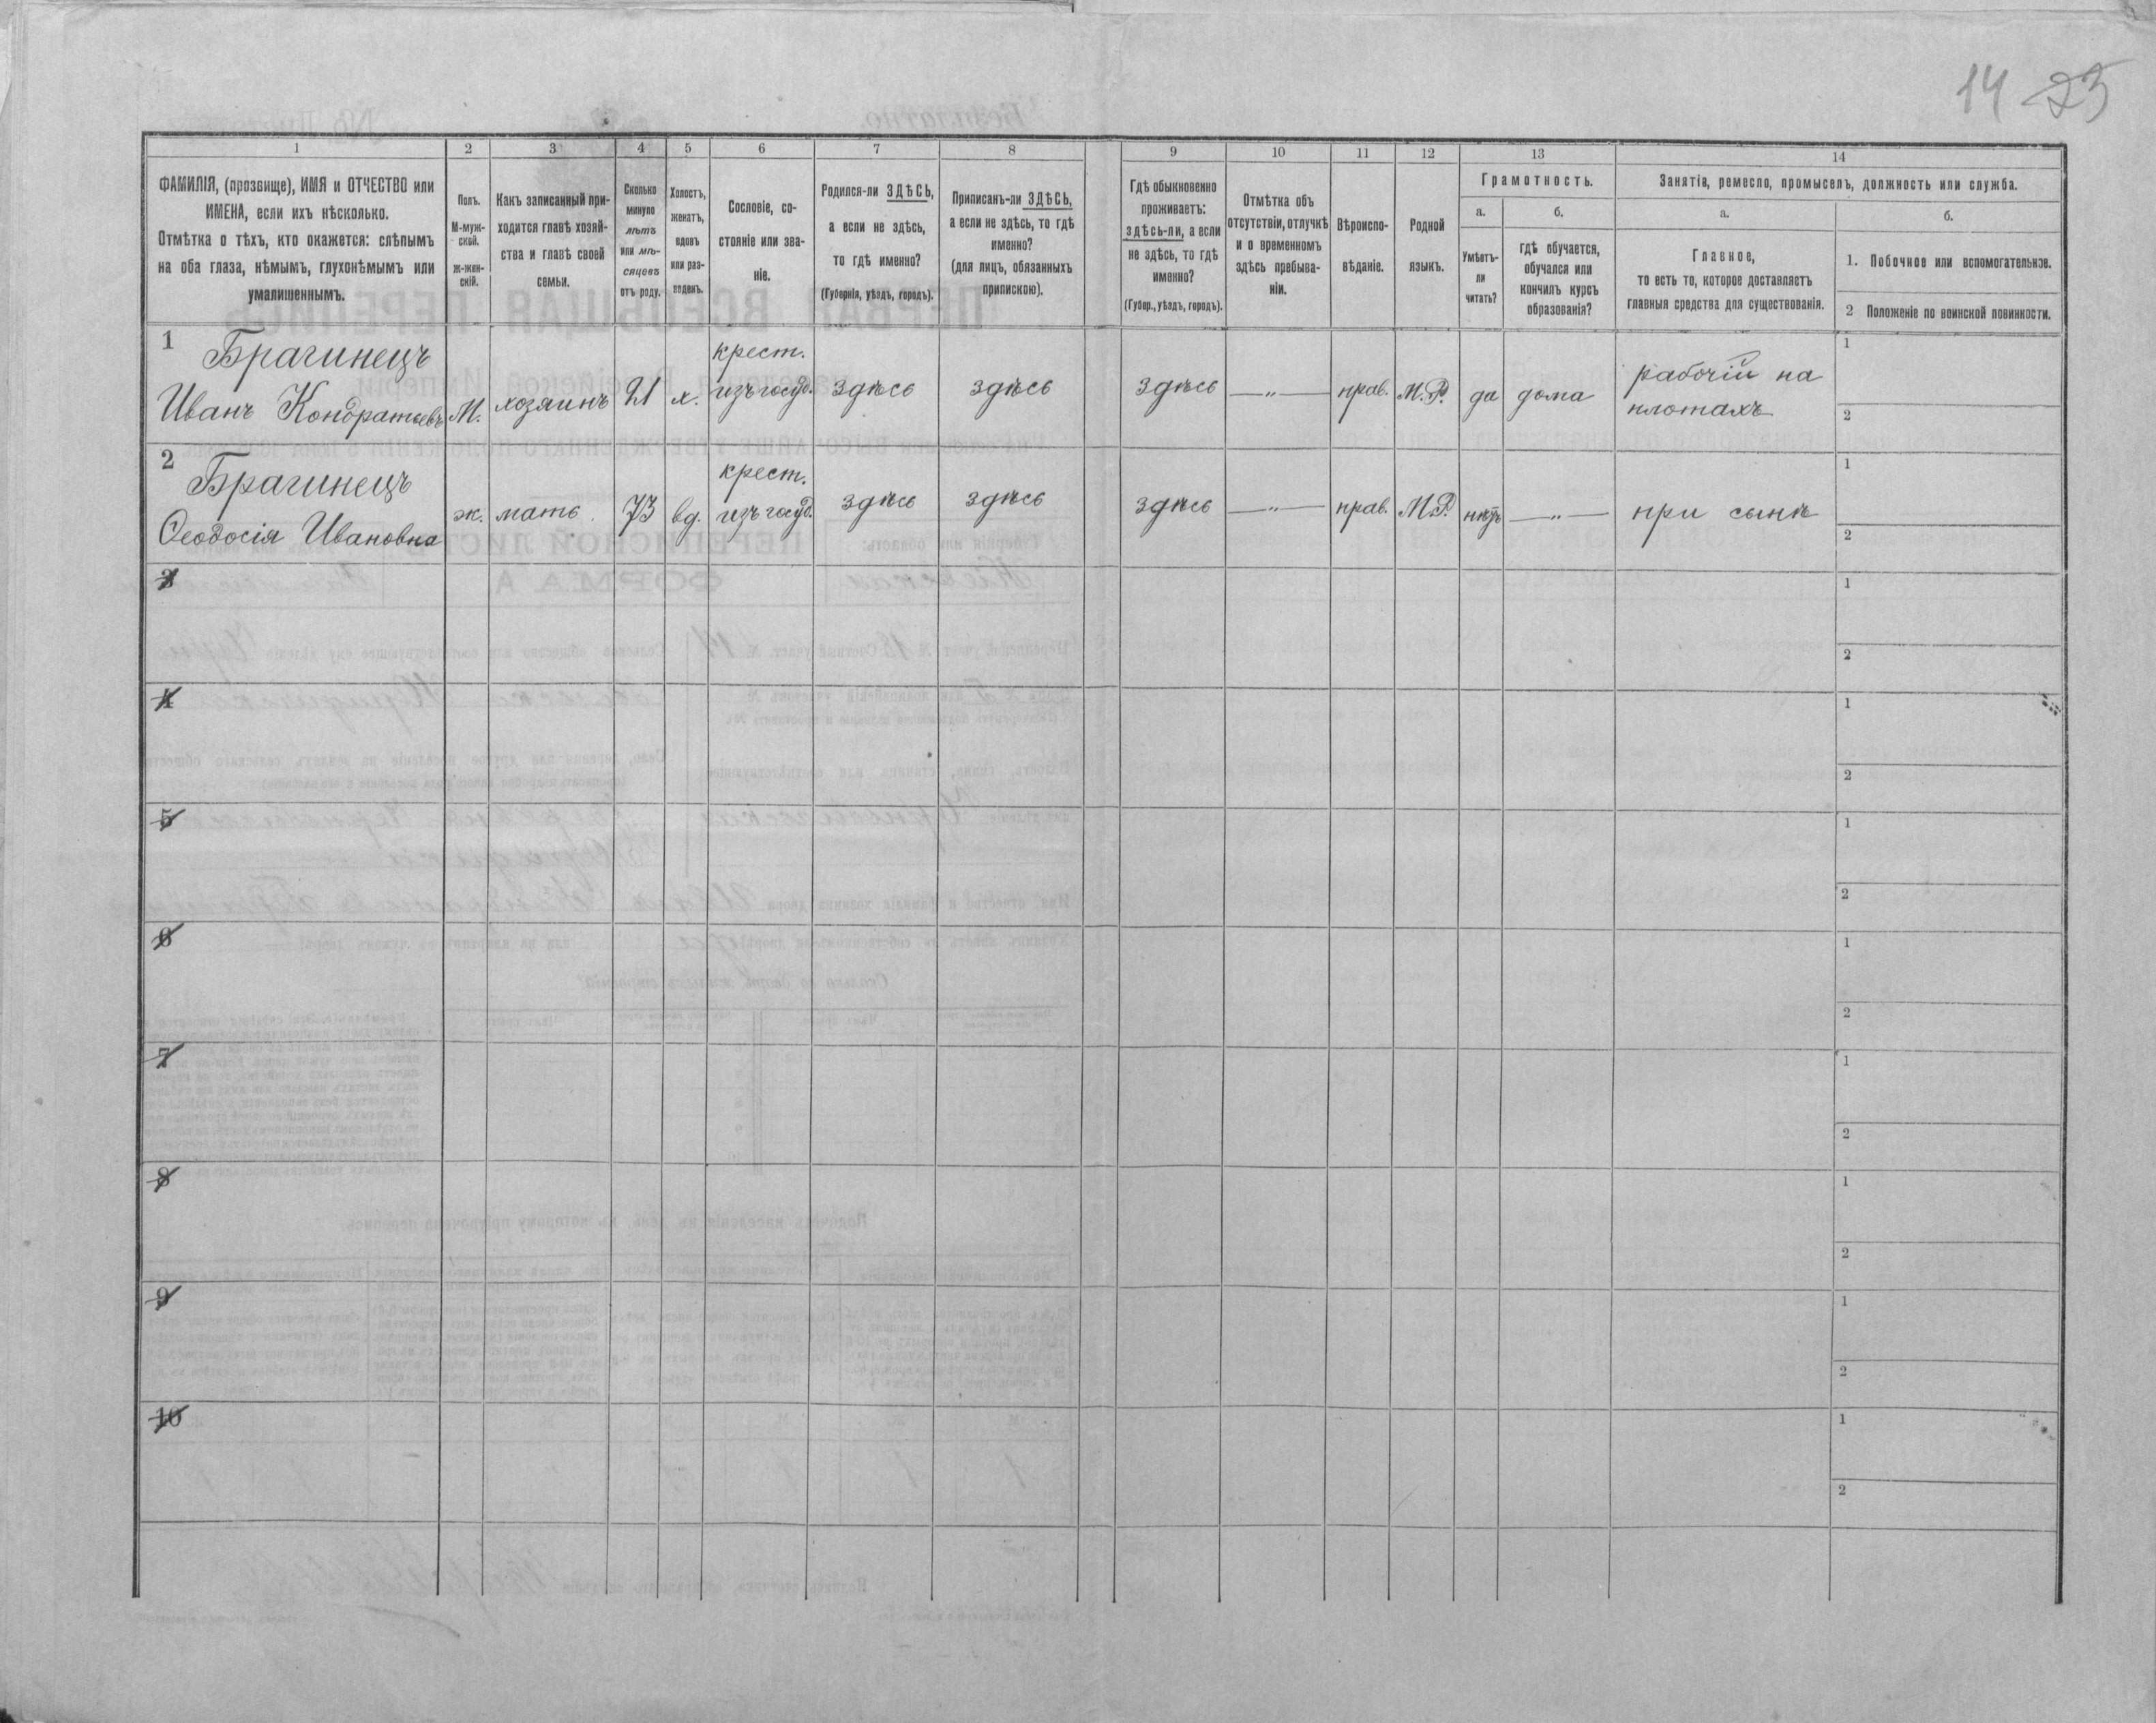 14 23
1 2 3 4 5 6 7 8 9 10 11 12 13 14
ФАМИЛІЯ, (прозвище), ИМЯ и ОТЧЕСТВО или
ИМЕНА, если ихъ нѣсколько.
Отмѣтка о тѣхъ, кто окажется: слѣпымъ
на оба глаза, нѣмымъ, глухонѣмымъ или
умалишеннымъ.
Полъ.
М-муж-
ской.
ж-жен-
скій.
Какъ записанный при-
ходится главѣ хозяй-
ства и главѣ своей
семьи.
Сколько
минуло
лѣтъ
или мѣ-
сяцевъ
отъ роду.
Холостъ,
женатъ,
вдовъ
или раз-
веденъ.
Сословіе, со-
стояніе или зва-
ніе.
Родился-ли ЗДѢСЬ,
а если не здѣсь,
то гдѣ именно?
(Губернія, уѣздъ, городъ).
Приписанъ-ли ЗДѢСЬ,
а если не здѣсь, то гдѣ
именно?
(для лицъ, обязанныхъ
припискою).
Гдѣ обыкновенно
проживаетъ:
здѣсь-ли, а если
не здѣсь, то гдѣ
именно?
(Губер., уѣздъ, городъ).
Отмѣтка объ
отсутствіи, отлучкѣ
и о временномъ
здѣсь пребыва-
ніи.
Вѣроиспо-
вѣданіе.
Родной
языкъ.
Грамотность.
а.
Умѣетъ-
ли
читать?
б.
гдѣ обучается,
обучался или
кончилъ курсъ
образованія?
Занятія, ремесло, промыселъ, должность или служба.
а.
Главное,
то есть то, которое доставляетъ
главныя средства для существованія.
б.
1. Побочное или вспомогательное.
2 Положеніе по воинской повинности.
1 Брагинецъ
Иванъ Кондратьевъ М. хозяинъ 21 х. крест. изъ госуд. здѣсь здѣсь здѣсь —„— прав. М.Р. да дома рабочій на
плотахъ
1
2
2 Брагинецъ
Ѳеодосія Ивановна ж. мать 73 вд. крест. изъ госуд. здѣсь здѣсь здѣсь —„— прав. М.Р. нѣтъ —„— при сынѣ
1
2
3
1
2
4
1
2
5
1
2
6
1
2
7
1
2
8
1
2
9
1
2
10
1
2